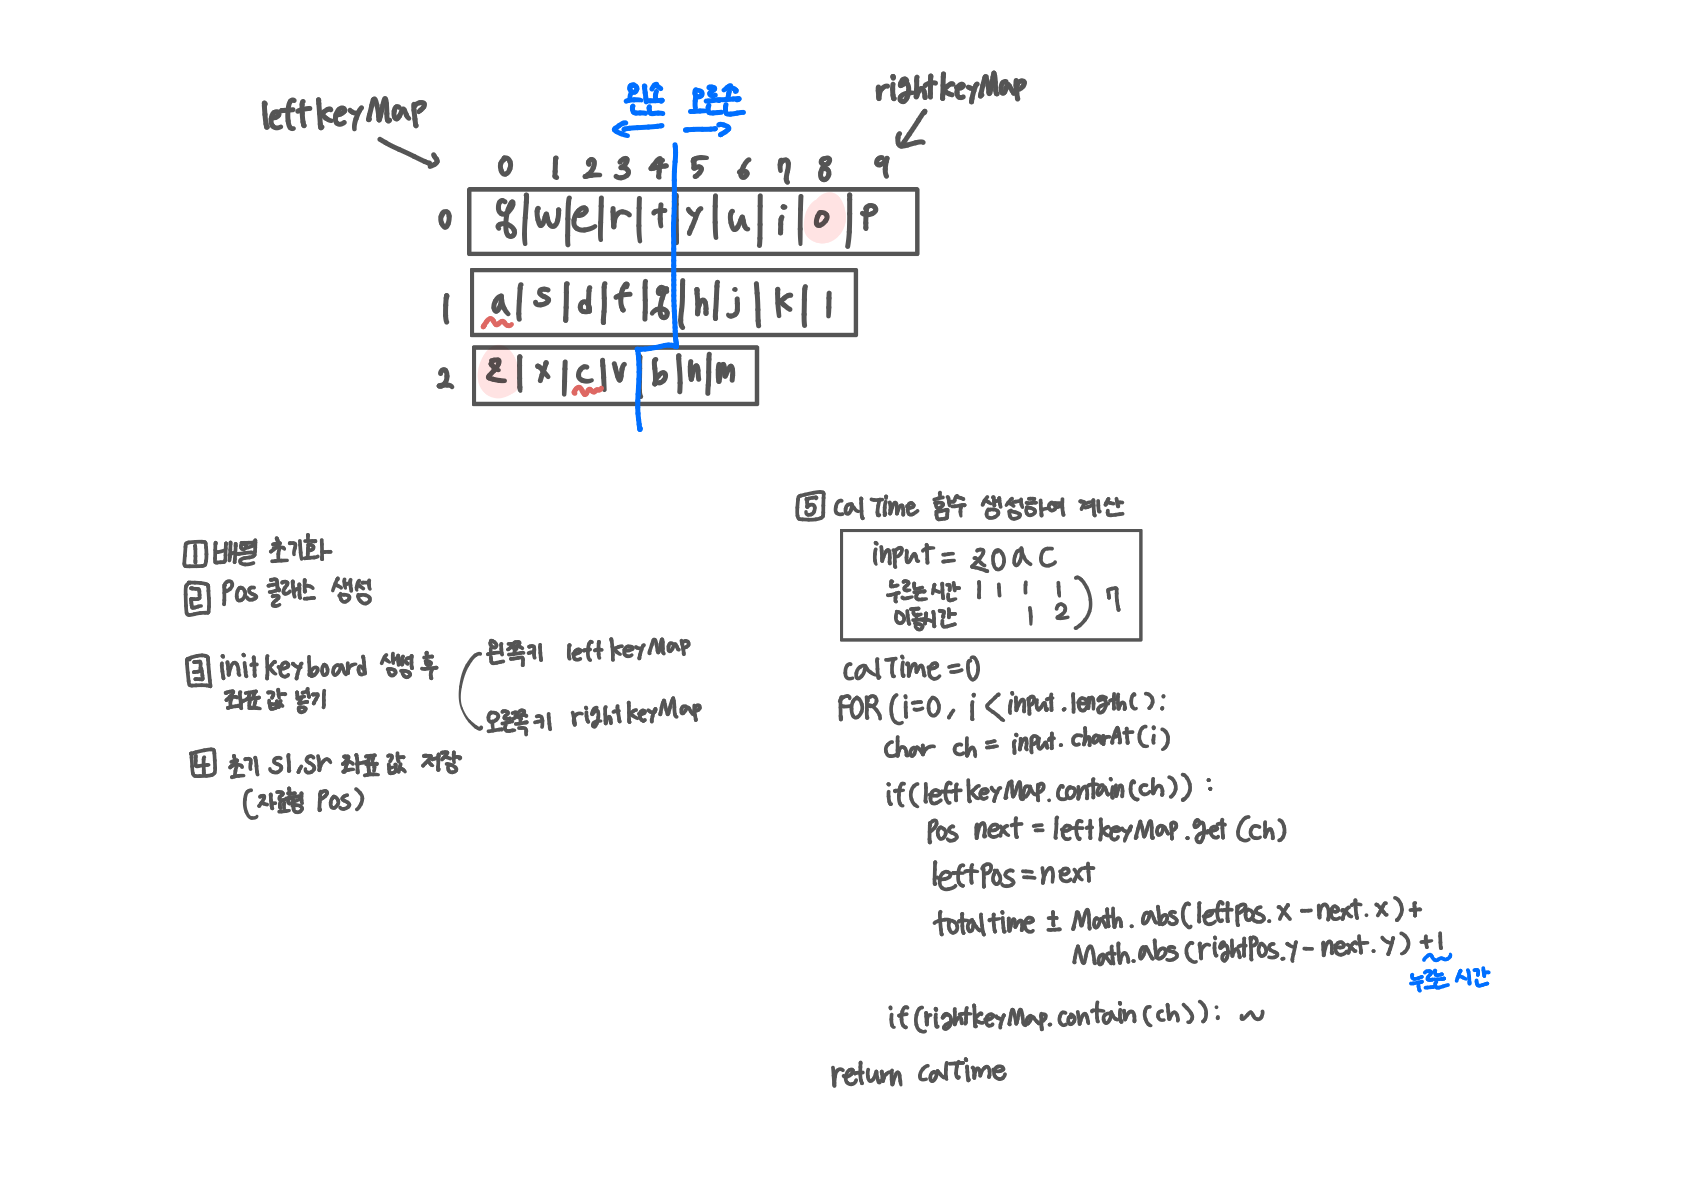 leftkeyMap
왼손 오른손
rightkeyMap
0 1 2 3 4 5 6 7 8 9
0 q|w|e|r|t|y|u|i|o|p
1 a|s|d|f|g|h|j|k|l
2 z|x|c|v|b|n|m
1 배열 초기화
2 Pos 클래스 생성
3 initkeyboard 생성 후
좌표 값 넣기
왼쪽키 leftkeyMap
오른쪽키 rightkeyMap
4 초기 sl,sr 좌표 값 저장
(자료형 Pos)
5 calTime 함수 생성하여 계산
input = zoac
누르는시간 1 1 1 1
이동시간 1 2 ) 7
calTime=0
FOR(i=0, i<input.length():
char ch = input.charAt(i)
if(leftkeyMap.contain(ch)):
Pos next = leftkeyMap.get(ch)
leftPos=next
totaltime ± Math.abs(leftPos.x-next.x)+
Math.abs(rightPos.y-next.y)+1
누르는 시간
if(rightkeyMap.contain(ch)): ~
return calTime